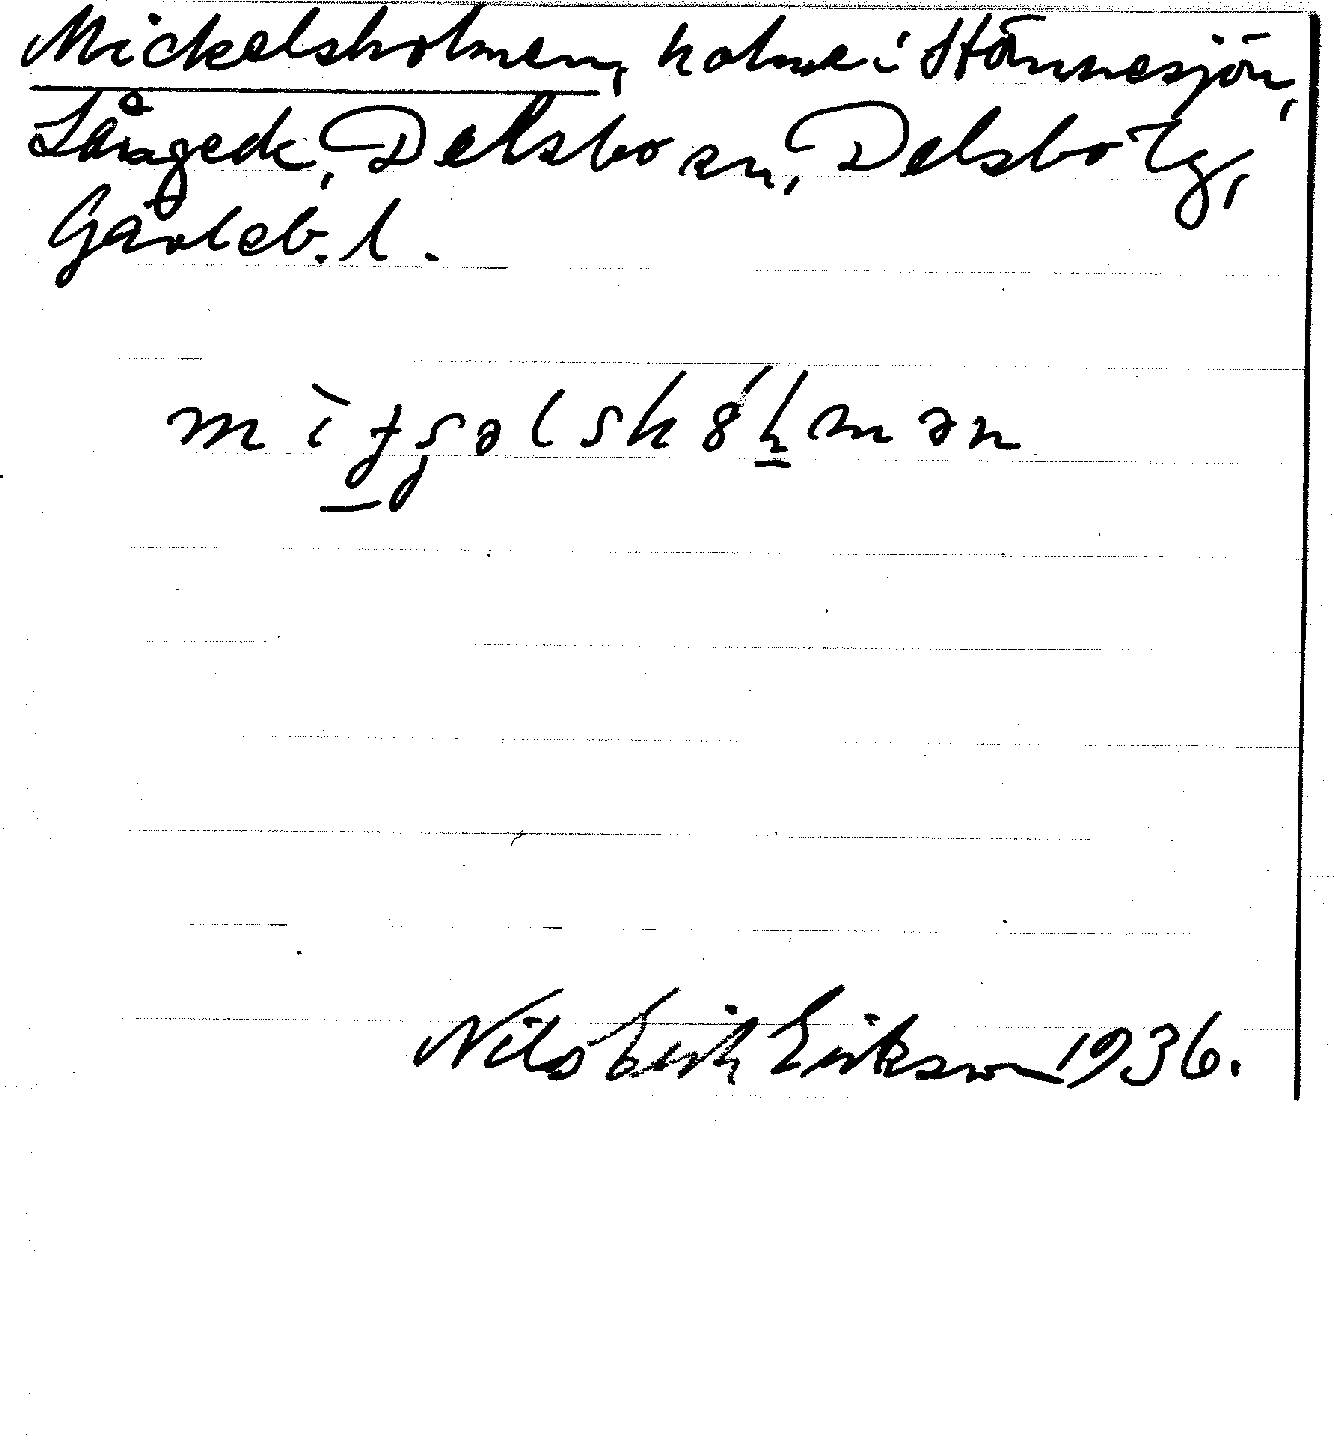 Mickelsholmen, holme i Stömnesjön,
Långede, Delsbo sn, Delsbo tg,
Gävleb. l.
Nils Erik Erikson 1936.